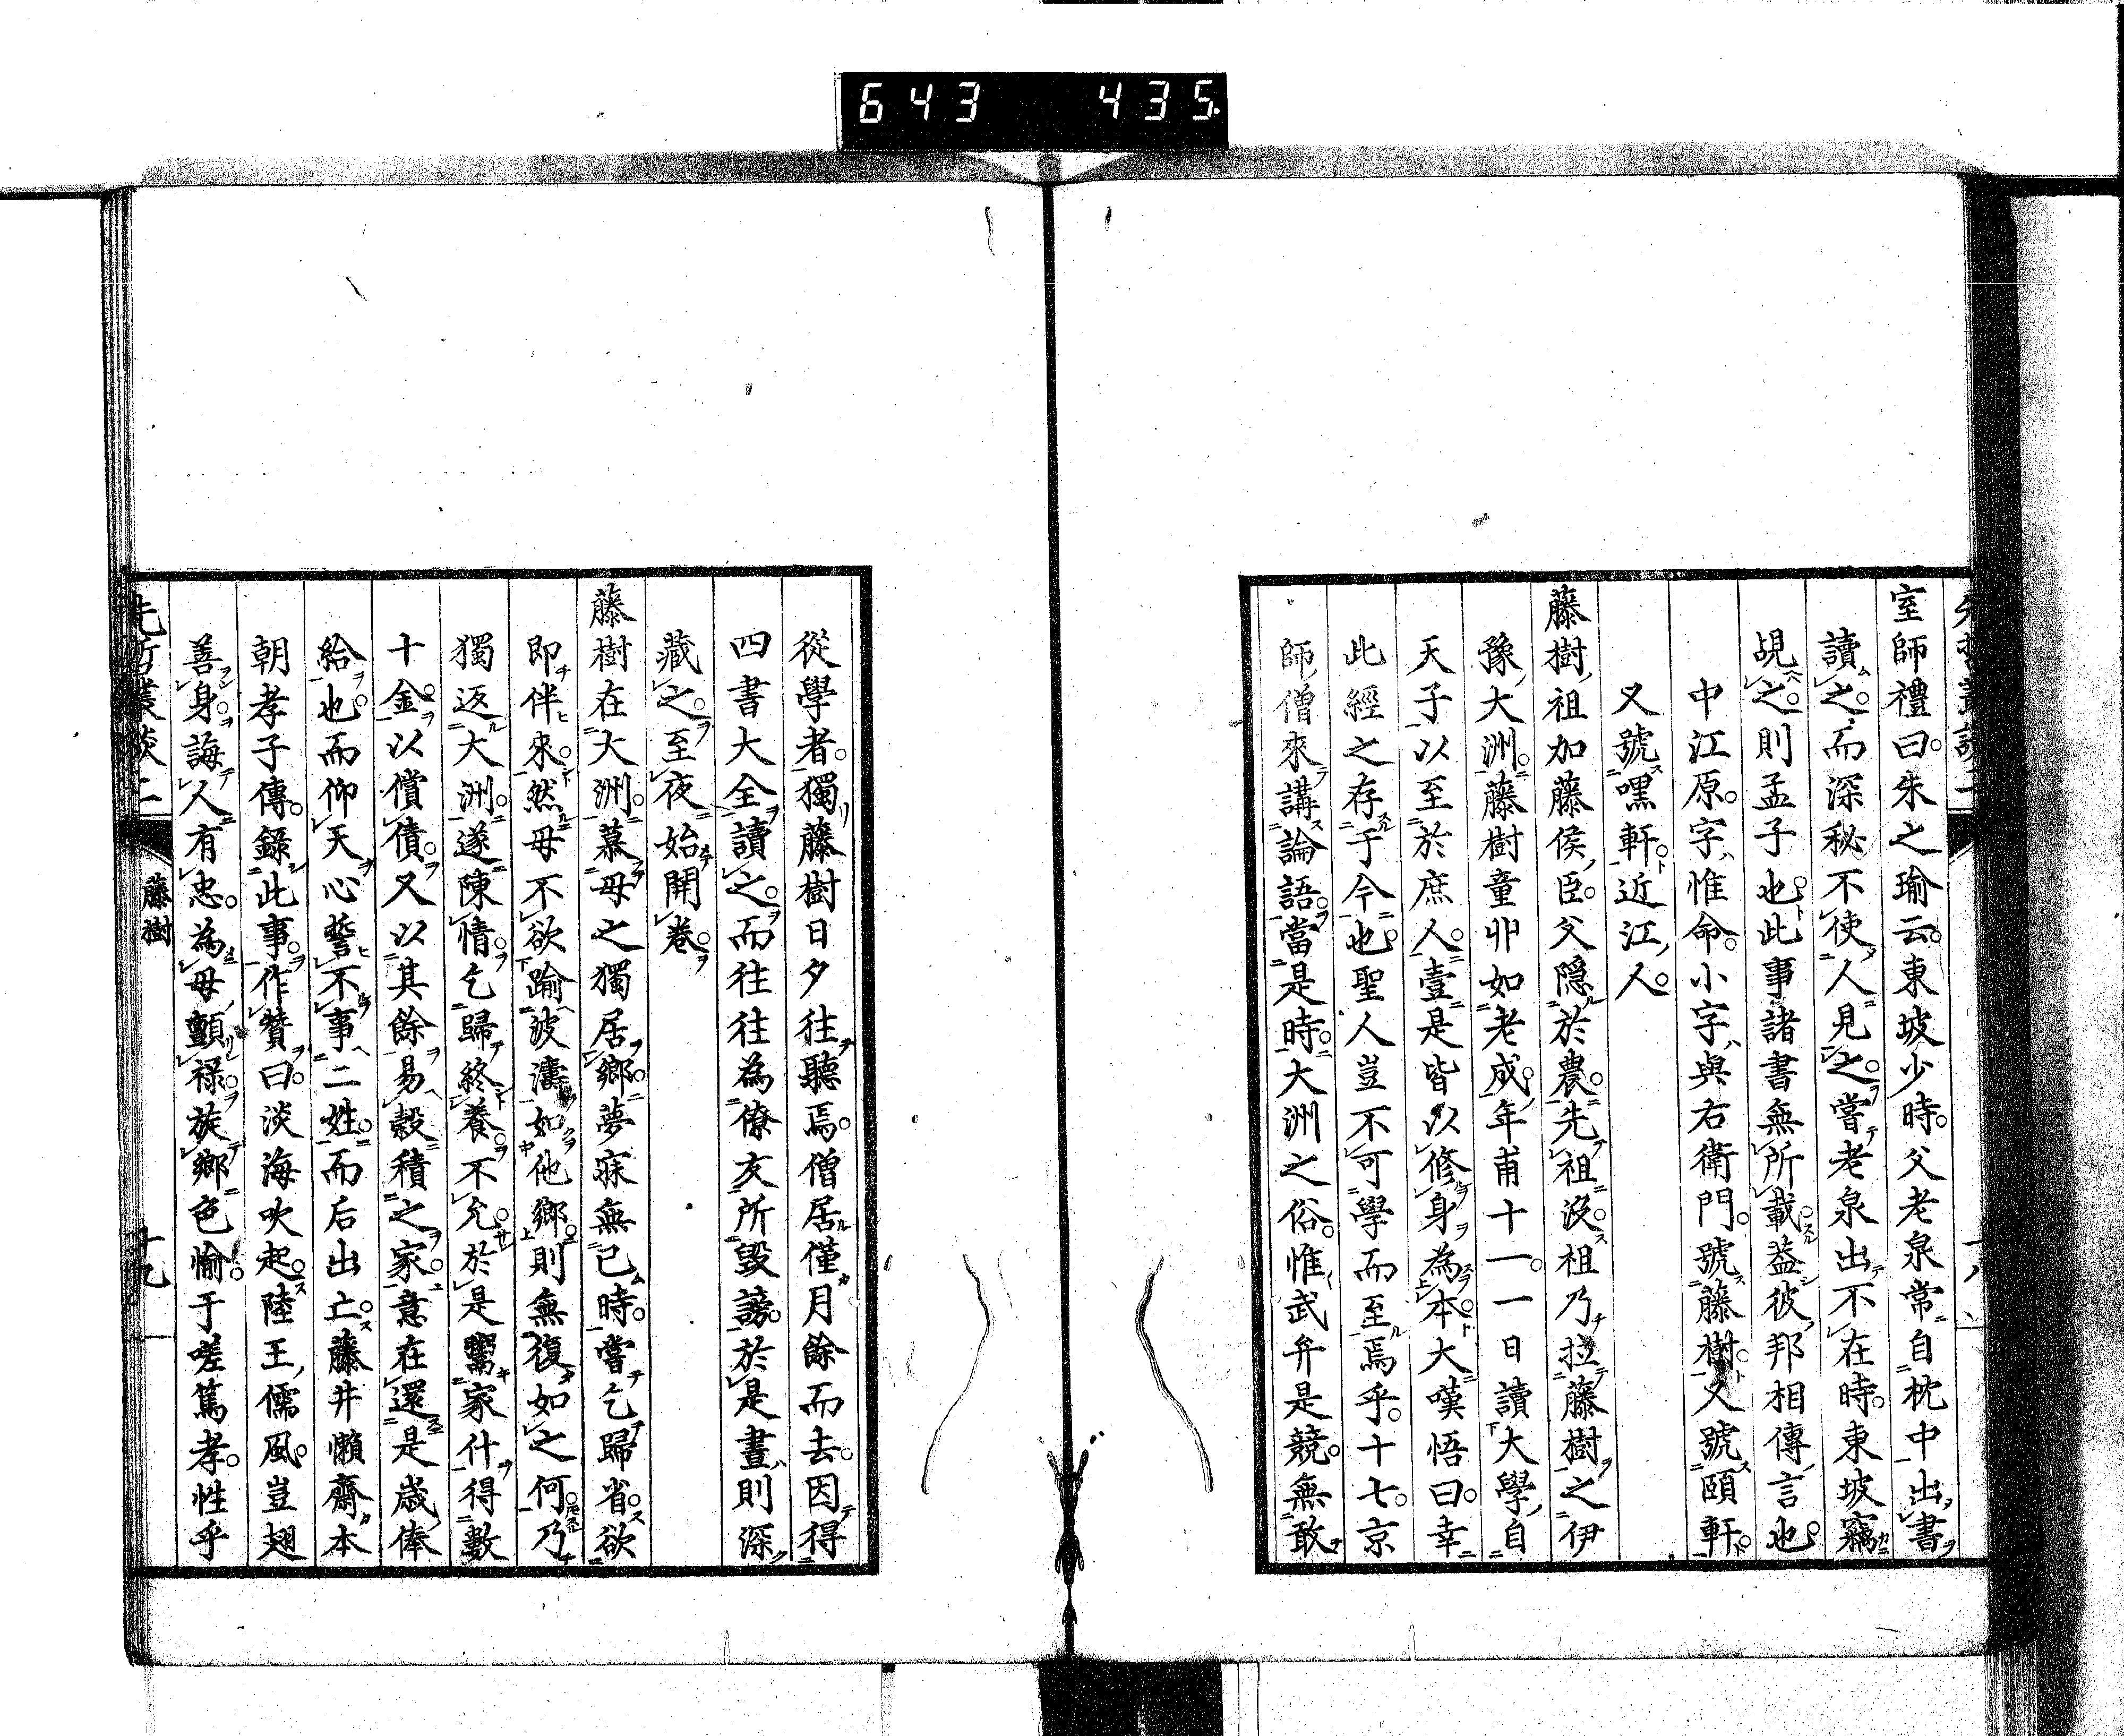 643 435
室師禮曰。朱之瑜云。東坡少時。父老泉常自枕中出書
讀之。而深秘不使人見之。嘗老泉出不在時。東坡竊
覘之。則孟子也。此事諸書無所載。蓋彼邦相傳言也。
中江原。字惟命。小字與右衛門。號藤樹。又號頤軒。
又號嘿軒。近江人。
藤樹祖加藤侯臣。父隱於農。先祖沒。祖乃拉藤樹之伊
豫大洲。藤樹童丱如老成。年甫十一。一日讀大學。自
天子以至於庶人。壹是皆以修身為本。大嘆悟曰。幸
此經之存于今也。聖人豈不可學而至焉乎。十七。京
師僧來講論語。當是時。大洲之俗。惟武弁是競。無敢
從學者。獨藤樹日夕往聽焉。僧居僅月餘而去。因得
四書大全讀之。而往往為僚友所毀謗。於是晝則深
藏之。至夜始開卷。
藤樹在大洲。慕母之獨居鄉。夢寐無已時。嘗乞歸省。欲
即伴來。然母不欲踰波濤如他鄉。則無復如之何。乃
獨返大洲。遂陳情乞歸終養。不允。於是鬻家什得數
十金。以償債。又以其餘易穀積之家。意在還是歲俸
給也。而仰天心誓不事二姓。而后出亡。藤井懶齋本
朝孝子傳。錄此事。作贊曰。淡海吹起。陸王儒風。豈翅
善身。誨人有忠。為母顫祿。旋鄉色愉。于嗟篤孝。性乎
先哲叢談二
藤樹
十九